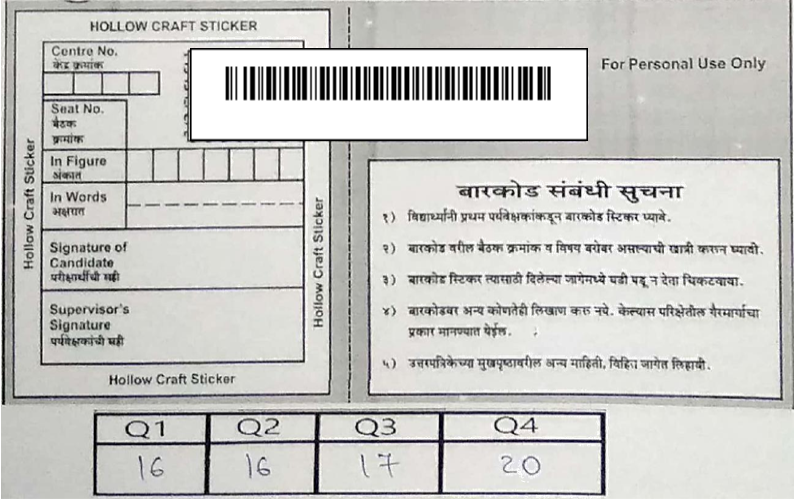 HOLLOW CRAFT STICKER
Centre No.
केंद्र क्रमांक
Seat No.
बैठक
क्रमांक
In Figure
अंकात
In Words
अक्षरात
Signature of
Candidate
परीक्षार्थीची सही
Supervisor's
Signature
पर्यवेक्षकांची सही
Hollow Craft Sticker
Hollow Craft Sticker
Hollow Craft Sticker
For Personal Use Only
बारकोड संबंधी सुचना
१) विद्यार्थ्यांनी प्रथम पर्यवेक्षकांकडून बारकोड स्टिकर घ्यावे.
२) बारकोड वरील बैठक क्रमांक व विषय बरोबर असल्याची खात्री करून घ्यावी.
३) बारकोड स्टिकर त्यासाठी दिलेल्या जागेमध्ये घडी पडू न देता चिकटवावा.
४) बारकोडवर अन्य कोणतेही लिखाण करु नये. केल्यास परिक्षेतील गैरमार्गाचा
प्रकार मानण्यात येईल.
५) उत्तरपत्रिकेच्या मुखपृष्ठावरील अन्य माहिती, विहित जागेत लिहावी.
Q1 Q2 Q3 Q4
16 16 17 20